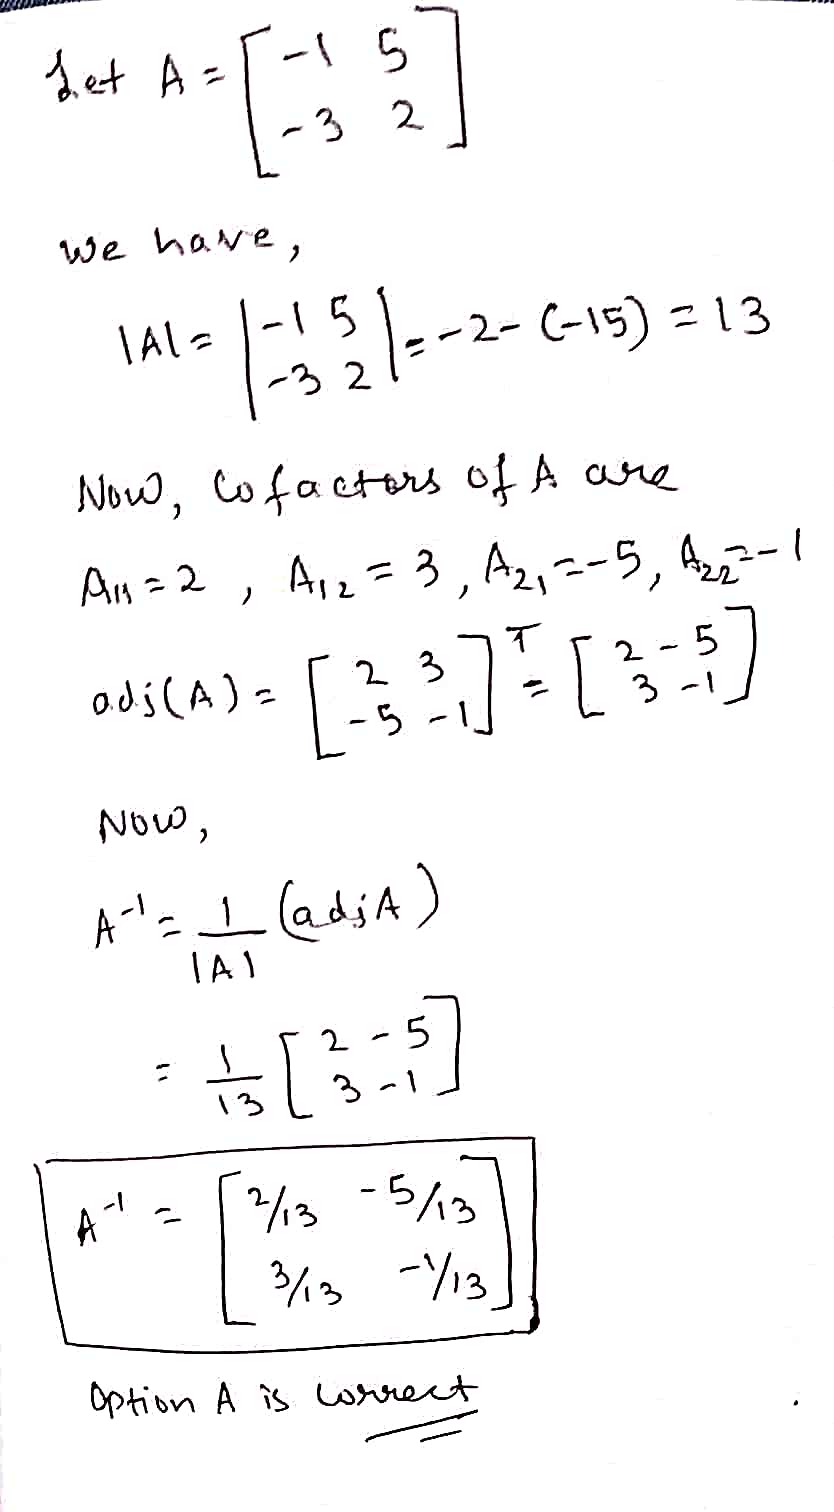 Let A = [ -1 5
-3 2 ]
we have,
|A| = | -1 5
-3 2 | = -2 - (-15) = 13
Now, Cofactors of A are
A11 = 2 , A12 = 3 , A21 = -5, A22 = -1
adj(A) = [ 2 3
-5 -1 ]^T = [ 2 -5
3 -1 ]
Now,
A^-1 = 1/|A| (adj A)
= 1/13 [ 2 -5
3 -1 ]
A^-1 = [ 2/13 -5/13
3/13 -1/13 ]
Option A is correct